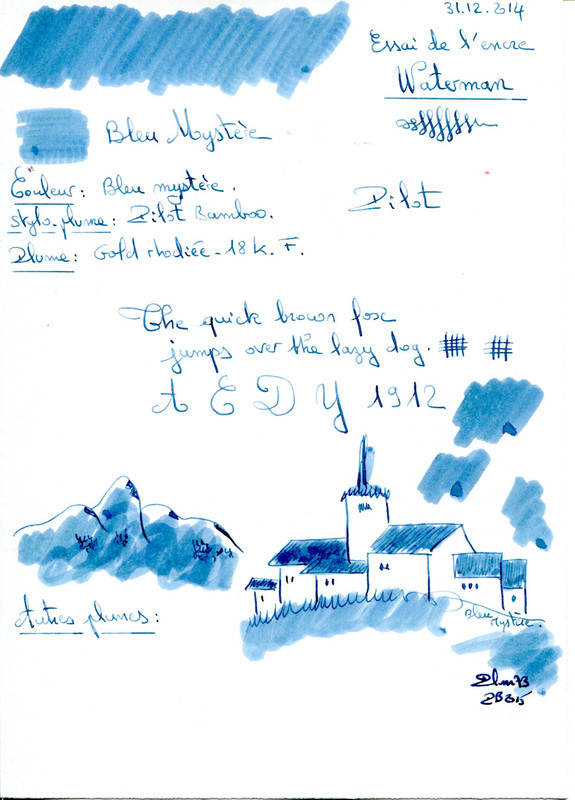 31.12.2014
Essai de l'encre
Waterman
Bleu Mystère
Couleur: Bleu mystère.
stylo-plume: Pilot Bamboo.
Pilot
Plume: Gold rhodiée - 18 K. F.
The quick brown fox
jumps over the lazy dog.
A E D Y 1912
Autres plumes:
Bleu
Mystère.